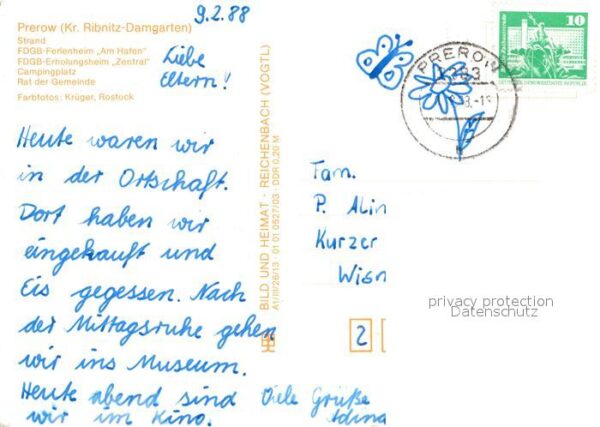 9.2.88
Prerow (Kr. Ribnitz-Damgarten)
Strand
FDGB-Ferienheim „Am Hafen“
FDGB-Erholungsheim „Zentral“
Campingplatz
Rat der Gemeinde
Farbfotos: Krüger, Rostock
Liebe
Eltern!
Heute waren wir
in der Ortschaft.
Dort haben wir
eingekauft und
Eis gegessen. Nach
der Mittagsruhe gehen
wir ins Museum.
Heute abend sind
wir im Kino.
Viele Grüße
Adina
BILD UND HEIMAT · REICHENBACH (VOGTL)
A1/III/26/13 · 01 01 0527/03 · DDR 0,20 M
PEROW
10
Fam.
P. Alin
Kurzer
Wisn
privacy protection
Datenschutz
2